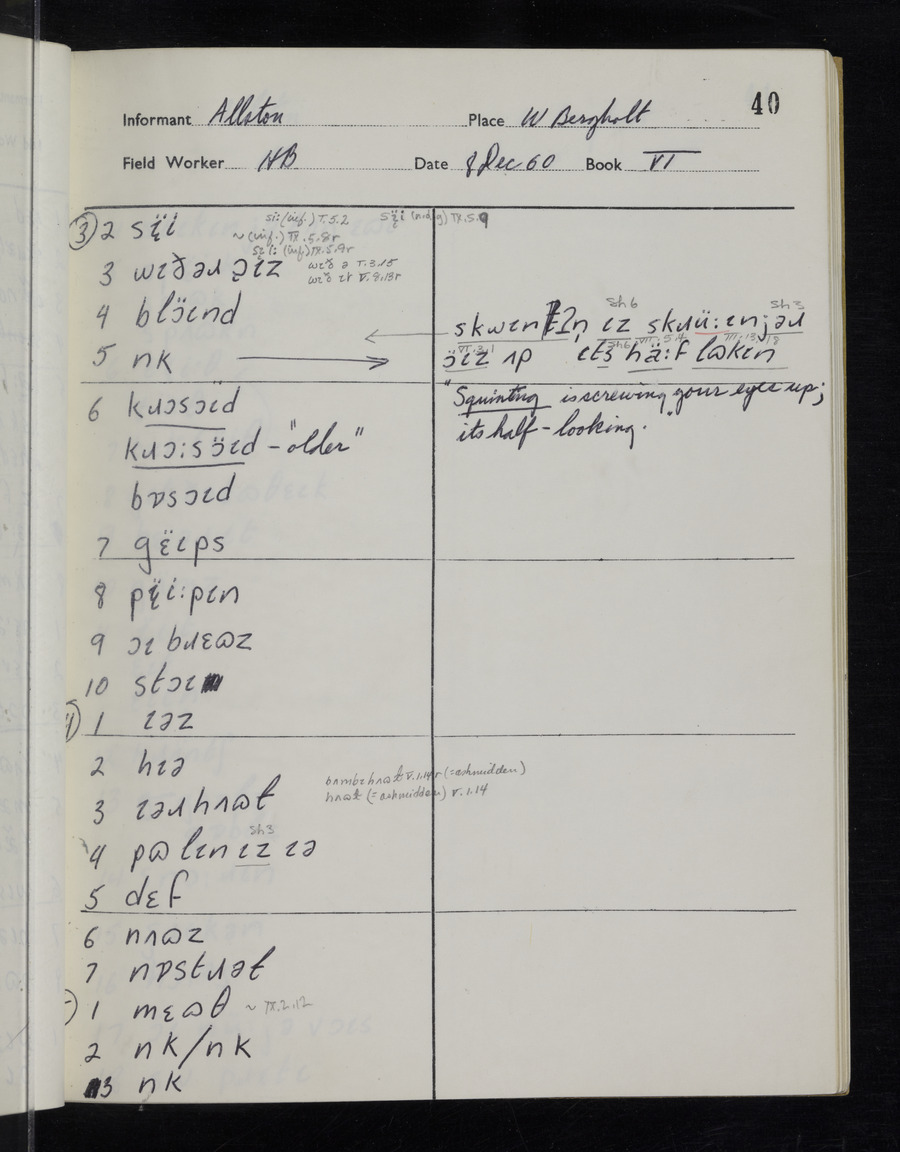 40
Informant Allston Place W Bergholt
Field Worker HB Date 8 Dec 60 Book VI
③ 2 sɪ̈i si: (inf.) V.5.2
~ (inf.) IX.5.8r
3 wɪð əɹ əɪz wɪð ə V.3.15
4 blɔ̈ɪnd
5 nk
skwɪntɪn ɪz skɹü:ɪnjəɹ
ɔ̈ɪz ʌp ɪts hä:f lɷkɪn
Sh 6 Sh 3
"Squinting is screwing your eyes up;
its half-looking."
6 kɹɔsɔɪd
kɹɔ:sɔ̈ɪd - "older"
bɒsɔɪd
7 gɛ̈ɪps
8 pɪ̈i:pɪn
9 ɔɪ bɹɛɷz
10 stɔɪ
④ 1 ɪəz
2 hɪə
3 ɪəɹhʌɷt bʌmbɪhʌɷt V.1.14r (=ashmidden)
hʌɷt (=ashmidden) V.1.14
Sh 3
4 pɷlɪn ɪz ɪə
5 dɛf
6 nʌɷz
7 nɒstɹət
1 mɛɷθ ~ IX.2.12
2 nk/nk
3 nk